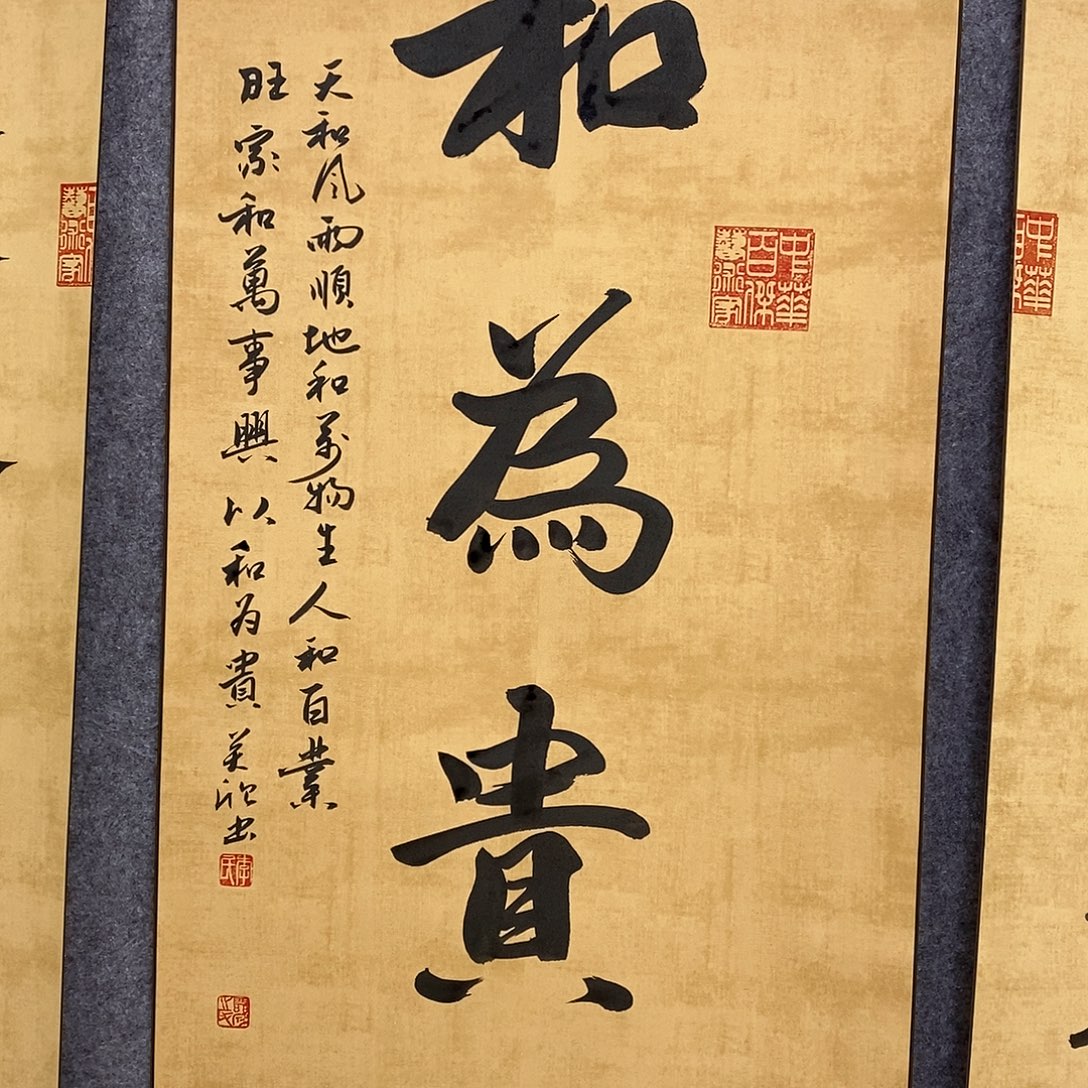 和為貴
天和風雨順地和萬物生人和百業
旺家和萬事興以和为貴
中華百傑藝術家